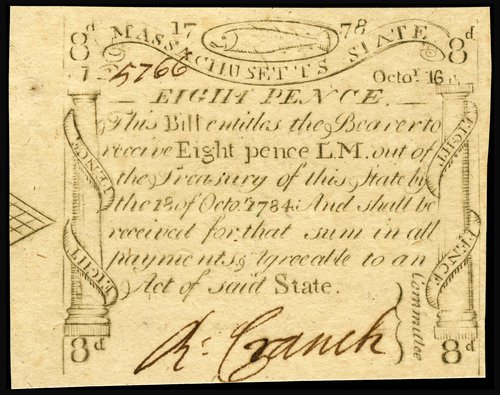 8d 17 78 8d
MASSACHUSETTS STATE
5766 Octor. 16d.
EIGHT PENCE.
This Bill entitles the Bearer to
receive Eight pence L.M. out of
the Treasury of this State by
the 18 of Octor. 1784. And shall be
received for that sum in all
payments Agreeable to an
Act of said State.
EIGHT PENCE
EIGHT PENCE
R: Cranch
Committee
8d 8d